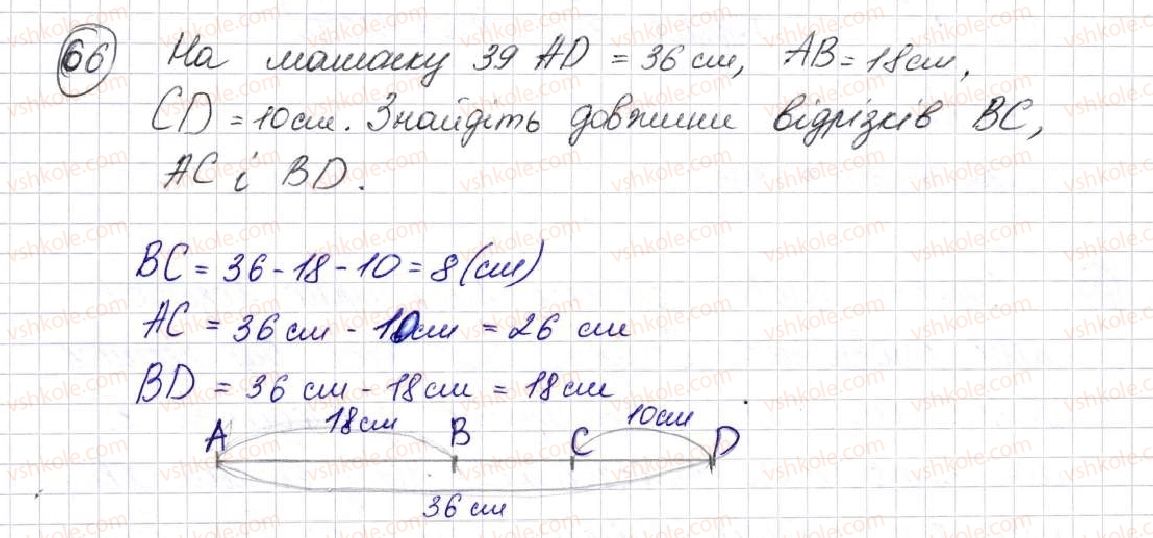 66 На малюнку 39 AD = 36 см, AB = 18 см,
CD = 10 см. Знайдіть довжини відрізків BC,
AC і BD.
BC = 36 - 18 - 10 = 8 (см)
AC = 36 см - 10 см = 26 см
BD = 36 см - 18 см = 18 см
18 см 10 см
A B C D
36 см
vshkole.com